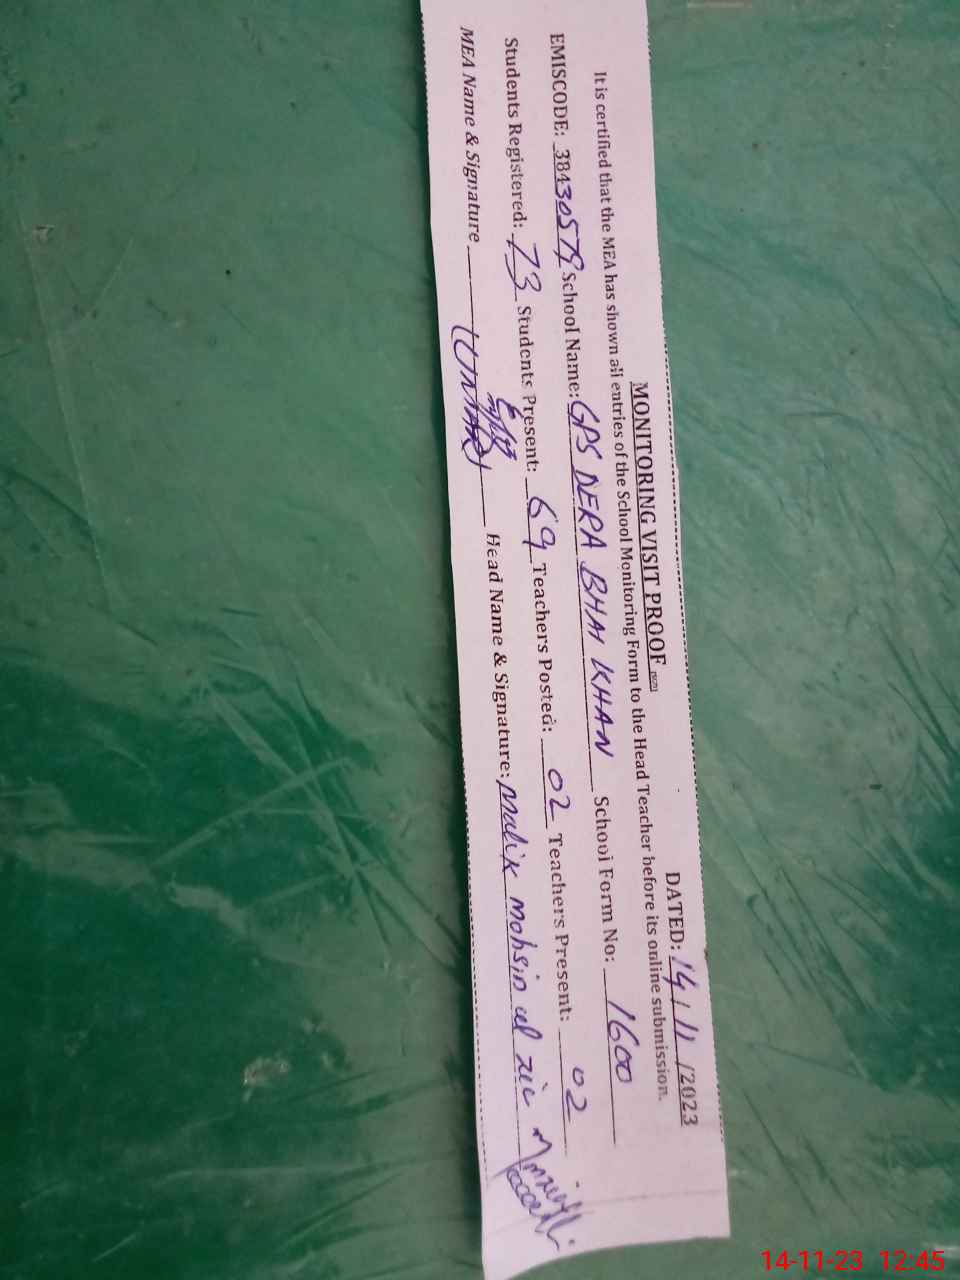 MONITORING VISIT PROOF
DATED: 14/11/2023
It is certified that the MEA has shown all entries of the School Monitoring Form to the Head Teacher before its online submission.
EMISCODE: 38430579 School Name: GPS DERA BHAI KHAN School Form No: 1600
Students Registered: 73 Students Present: 69 Teachers Posted: 02 Teachers Present: 02
MEA Name & Signature (UMAR) Head Name & Signature: Malik mohsin
14-11-23 12:45